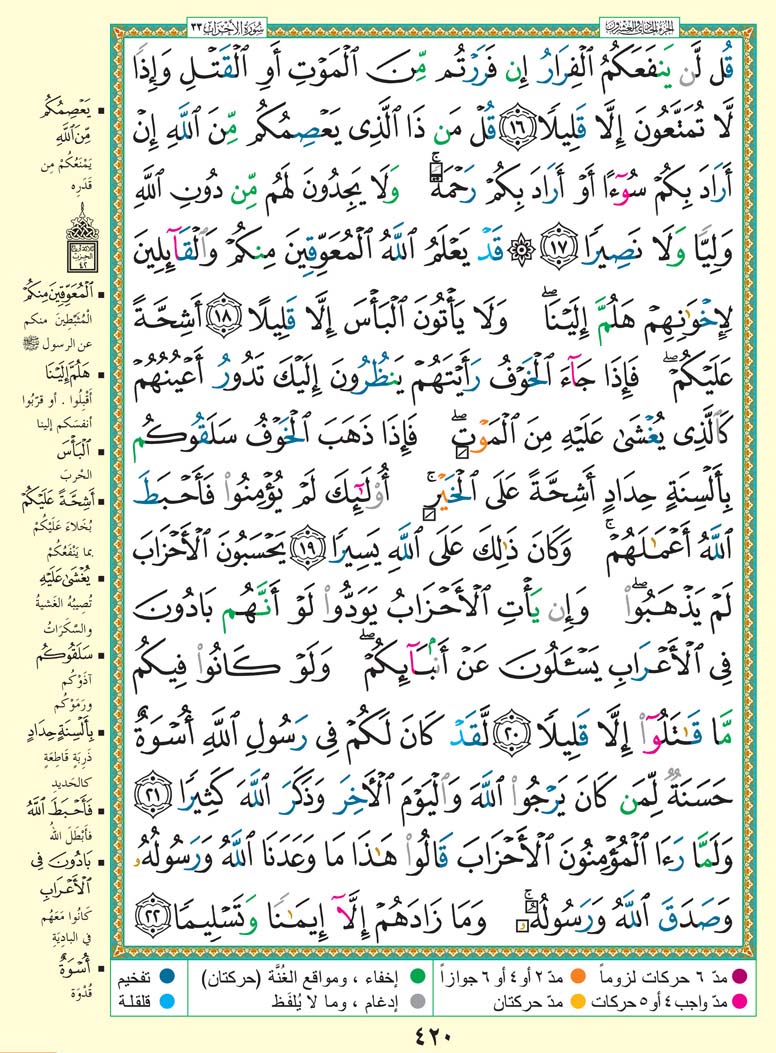 سُورَةُ الأَحْزَابِ ٣٣
الجزء الحادي والعشرون
قُل لَّن يَنفَعَكُمُ ٱلْفِرَارُ إِن فَرَرْتُم مِّنَ ٱلْمَوْتِ أَوِ ٱلْقَتْلِ وَإِذًا
لَّا تُمَتَّعُونَ إِلَّا قَلِيلًا ١٦ قُلْ مَن ذَا ٱلَّذِى يَعْصِمُكُم مِّنَ ٱللَّهِ إِنْ
أَرَادَ بِكُمْ سُوٓءًا أَوْ أَرَادَ بِكُمْ رَحْمَةً ۚ وَلَا يَجِدُونَ لَهُم مِّن دُونِ ٱللَّهِ
وَلِيًّا وَلَا نَصِيرًا ١٧ ۞ قَدْ يَعْلَمُ ٱللَّهُ ٱلْمُعَوِّقِينَ مِنكُمْ وَٱلْقَآئِلِينَ
لِإِخْوَٰنِهِمْ هَلُمَّ إِلَيْنَا ۖ وَلَا يَأْتُونَ ٱلْبَأْسَ إِلَّا قَلِيلًا ١٨ أَشِحَّةً
عَلَيْكُمْ ۖ فَإِذَا جَآءَ ٱلْخَوْفُ رَأَيْتَهُمْ يَنظُرُونَ إِلَيْكَ تَدُورُ أَعْيُنُهُمْ
كَٱلَّذِى يُغْشَىٰ عَلَيْهِ مِنَ ٱلْمَوْتِ ۖ فَإِذَا ذَهَبَ ٱلْخَوْفُ سَلَقُوكُم
بِأَلْسِنَةٍ حِدَادٍ أَشِحَّةً عَلَى ٱلْخَيْرِ ۚ أُو۟لَٰٓئِكَ لَمْ يُؤْمِنُوا۟ فَأَحْبَطَ
ٱللَّهُ أَعْمَٰلَهُمْ ۚ وَكَانَ ذَٰلِكَ عَلَى ٱللَّهِ يَسِيرًا ١٩ يَحْسَبُونَ ٱلْأَحْزَابَ
لَمْ يَذْهَبُوا۟ ۖ وَإِن يَأْتِ ٱلْأَحْزَابُ يَوَدُّوا۟ لَوْ أَنَّهُم بَادُونَ
فِى ٱلْأَعْرَابِ يَسْـَٔلُونَ عَنْ أَنۢبَآئِكُمْ ۖ وَلَوْ كَانُوا۟ فِيكُم
مَّا قَٰتَلُوٓا۟ إِلَّا قَلِيلًا ٢٠ لَّقَدْ كَانَ لَكُمْ فِى رَسُولِ ٱللَّهِ أُسْوَةٌ
حَسَنَةٌ لِّمَن كَانَ يَرْجُوا۟ ٱللَّهَ وَٱلْيَوْمَ ٱلْأَخِرَ وَذَكَرَ ٱللَّهَ كَثِيرًا ٢١
وَلَمَّا رَءَا ٱلْمُؤْمِنُونَ ٱلْأَحْزَابَ قَالُوا۟ هَٰذَا مَا وَعَدَنَا ٱللَّهُ وَرَسُولُهُۥ
وَصَدَقَ ٱللَّهُ وَرَسُولُهُۥ ۚ وَمَا زَادَهُمْ إِلَّآ إِيمَٰنًا وَتَسْلِيمًا ٢٢
يَعْصِمُكُم
مِّنَ ٱللَّهِ
يَمْنَعُكُمْ مِن
قَدَرِه
ثلاثة أرباع
الحزب
٤٢
ٱلْمُعَوِّقِينَ مِنكُمْ
الْمُثَبِّطِينَ منكم
عن الرسول ﷺ
هَلُمَّ إِلَيْنَا
أَقْبِلُوا . أو قرّبُوا
أنفسَكم إلينا
ٱلْبَأْسَ
الحْربَ
أَشِحَّةً عَلَيْكُمْ
بُخَلاءَ عَلَيْكُمْ
بما يَنْفَعُكُمْ
يُغْشَىٰ عَلَيْهِ
تُصِيبُهُ الغَشيةُ
والسَّكَرَاتُ
سَلَقُوكُم
آذَوْكُم
ورَمَوْكُم
بِأَلْسِنَةٍ حِدَادٍ
ذَرِبَةٍ قَاطِعَةٍ
كالحَديد
فَأَحْبَطَ ٱللَّهُ
فأَبْطَلَ اللهُ
بَادُونَ فِى
ٱلْأَعْرَابِ
كَانُوا مَعَهُم
في البادِيَةِ
أُسْوَةٌ
قُدْوَة
مدّ ٦ حركات لزوماً
مدّ ٢ أو ٤ أو ٦ جوازاً
إخفاء ، ومواقع الغُنَّة (حركتان)
تفخيم
مدّ واجب ٤ أو ٥ حركات
مدّ حركتان
إدغام ، وما لا يُلفَظ
قلقلة
٤٢٠